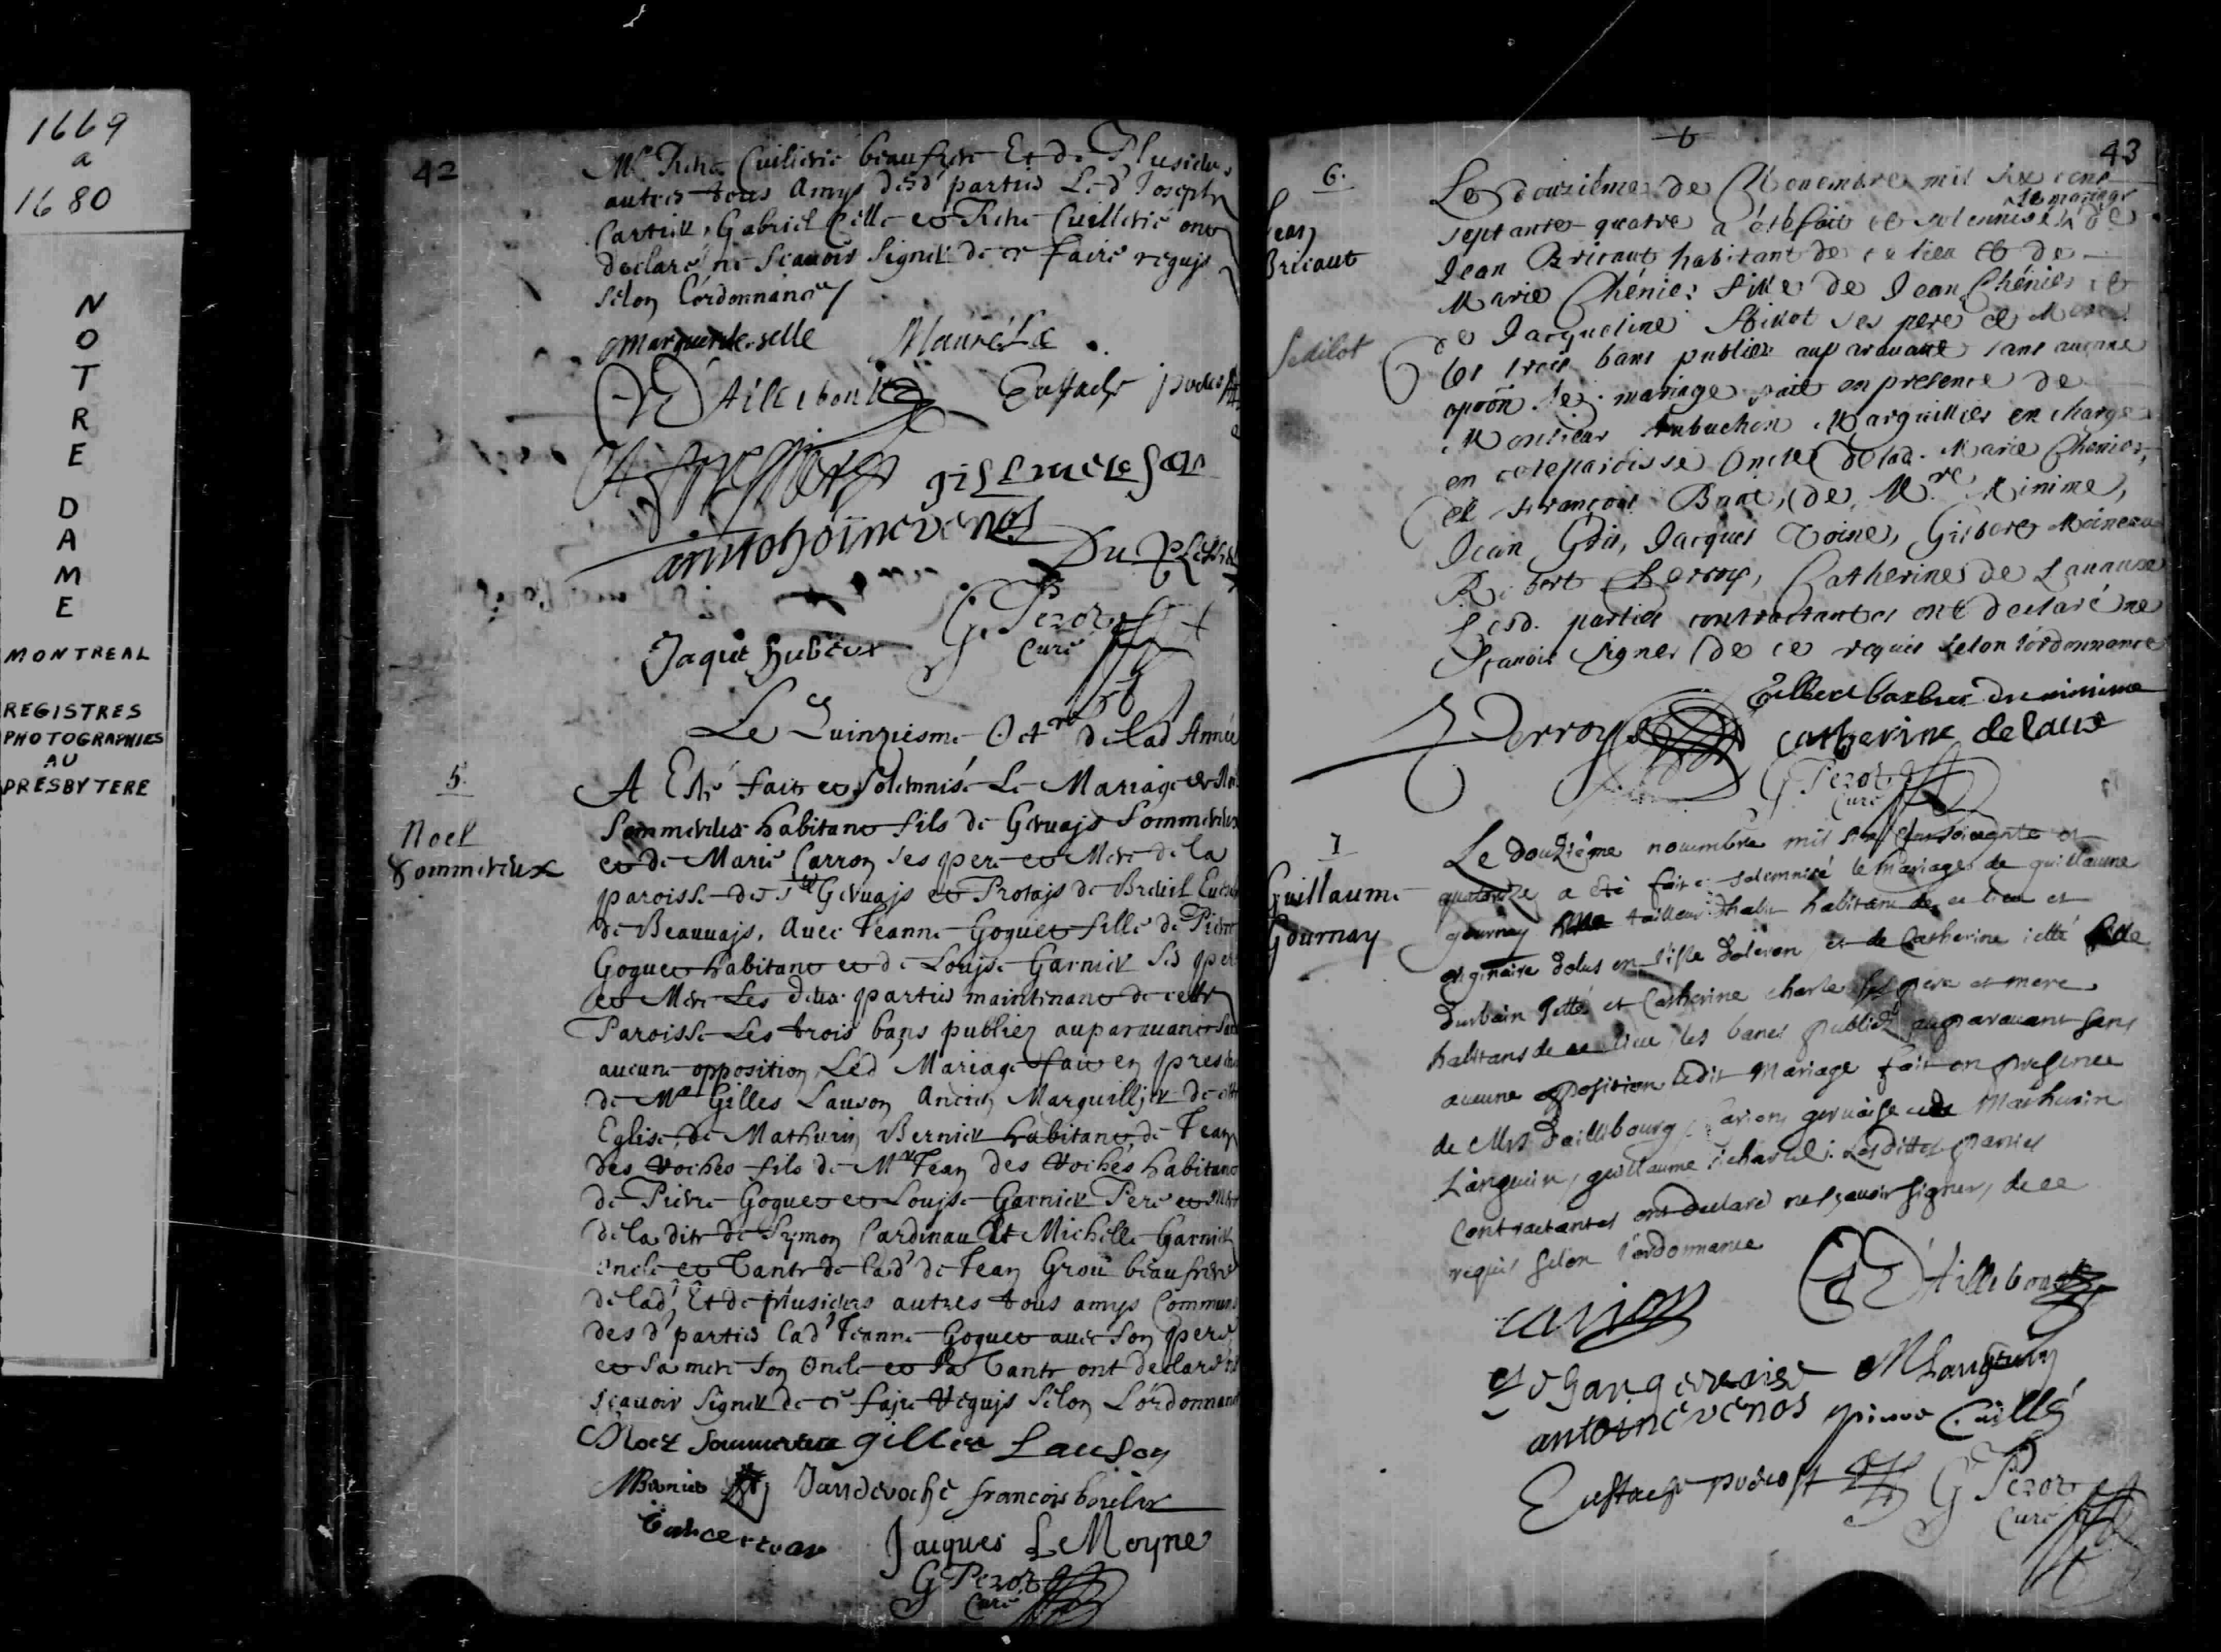 1669
a
1680
NOTRE DAME
MONTREAL
REGISTRES
PHOTOGRAPHIES
AU
PRESBYTERE
42
Mr Rene Cuilierie beaufrere Et de Plusieurs
autres tous Amys desd' parties Led' Joseph
Cartier, Gabriel Celle et Rene Cuillerie ont
declaré ne Scauoir Signer de ce faire requis
Selon L'ordonnance
Marguerite selle
D'Aillebout
antohoine venos
Jaque hubert
G. Perot
Curé
Le Quinziesme Octre de lad Année
5.
Noel
Sommereux
A Esté fait et Solemnisé Le Mariage de
Sommereux habitant fils de Geruajs Sommereux
et de Marie Carron ses pere et Mere de la
paroisse des Sts Geruajs et Protajs de Breuil
de Beauuajs, Auec Jeanne Goguet fille de Pierre
Goguet habitant et de Loujse Garnier Ses pere
et Mere Les deux parties maintenant de cette
Paroisse Les trois bans publiez auparauant
aucune opposition Led Mariage fait en
de Mr Gilles Lauson Ancien Marguillier de
Eglise, de Mathurin Bernier habitant, de Jean
des Roches fils de Mr Jean des Roches habitant
de Pierre Goguet et Louise Garnier Pere et Mere
de la dite de Symon Cardinau Et Michelle Garnier
oncle et Tante de lad' de Jean Grou beaufrere
de lad', Et de plusieurs autres tous amys Communs
des d' parties Lad' Jeanne Goguet auec son pere
et sa mere son Oncle et Sa Tante ont declaré
scauoir Signer de ce faire requis Selon L'ordonnance
Noel Sommereux gilles Lauson
MBernier Janderoche francois
Jacques LeMoyne
G Perot
Curé
43
6.
Jean
Bricaut
Sedilot
Le douziéme de Nouembre mil six cent
le mariage
septante quatre a été fait et solennisé de
Jean Bricaut habitant de ce lieu et de
Marie Chénier fille de Jean Chénier et
de Jacqueline Sedilot ses pere et Mere
les trois bans publiez auparauant sans aucune
opoōn le mariage fait en presence de
Monsieur Aubuchon Marguillier en charge
en cete paroisse Oncle de lad. Marie Chénier,
et François Bary, de Mre Minime,
Jean Gris, Jacques Voine, Gilbert
Robert Perroy, Catherine de Lauaux
Lesd. parties contractantes ont declaré ne
Sçauoir Signer de ce requis selon l'ordonnance
Gilbert barbier du minime
Perroy catherine delaux
G Perot
Curé
7
Guillaume
Gournay
Le douzième nouembre mil six cens soixante et
quatorze a été fait et solemnisé le mariage de guillaume
gournay tailleur d'habit habitant de ce lieu et
originaire dolus en l'isle doleron, et de Catherine jetté fille
durbain Jetté et Catherine charle ses pere et mere
habitans de ce lieu, les bans publiez auparauant sans
aucune opposition ledit Mariage fait en presence
de Mrs daillibourg, Carion, geruaise et de Mathurin
Languin, guillaume richard: Lesdittes parties
Contractantes ont declaré ne sçauoir signer, de ce
requis selon l'ordonnance
carion D'Aillebout
Jehan geruaise MLanguin
antoine venos pierre Caillé
Eustache preuost G Perot
Curé